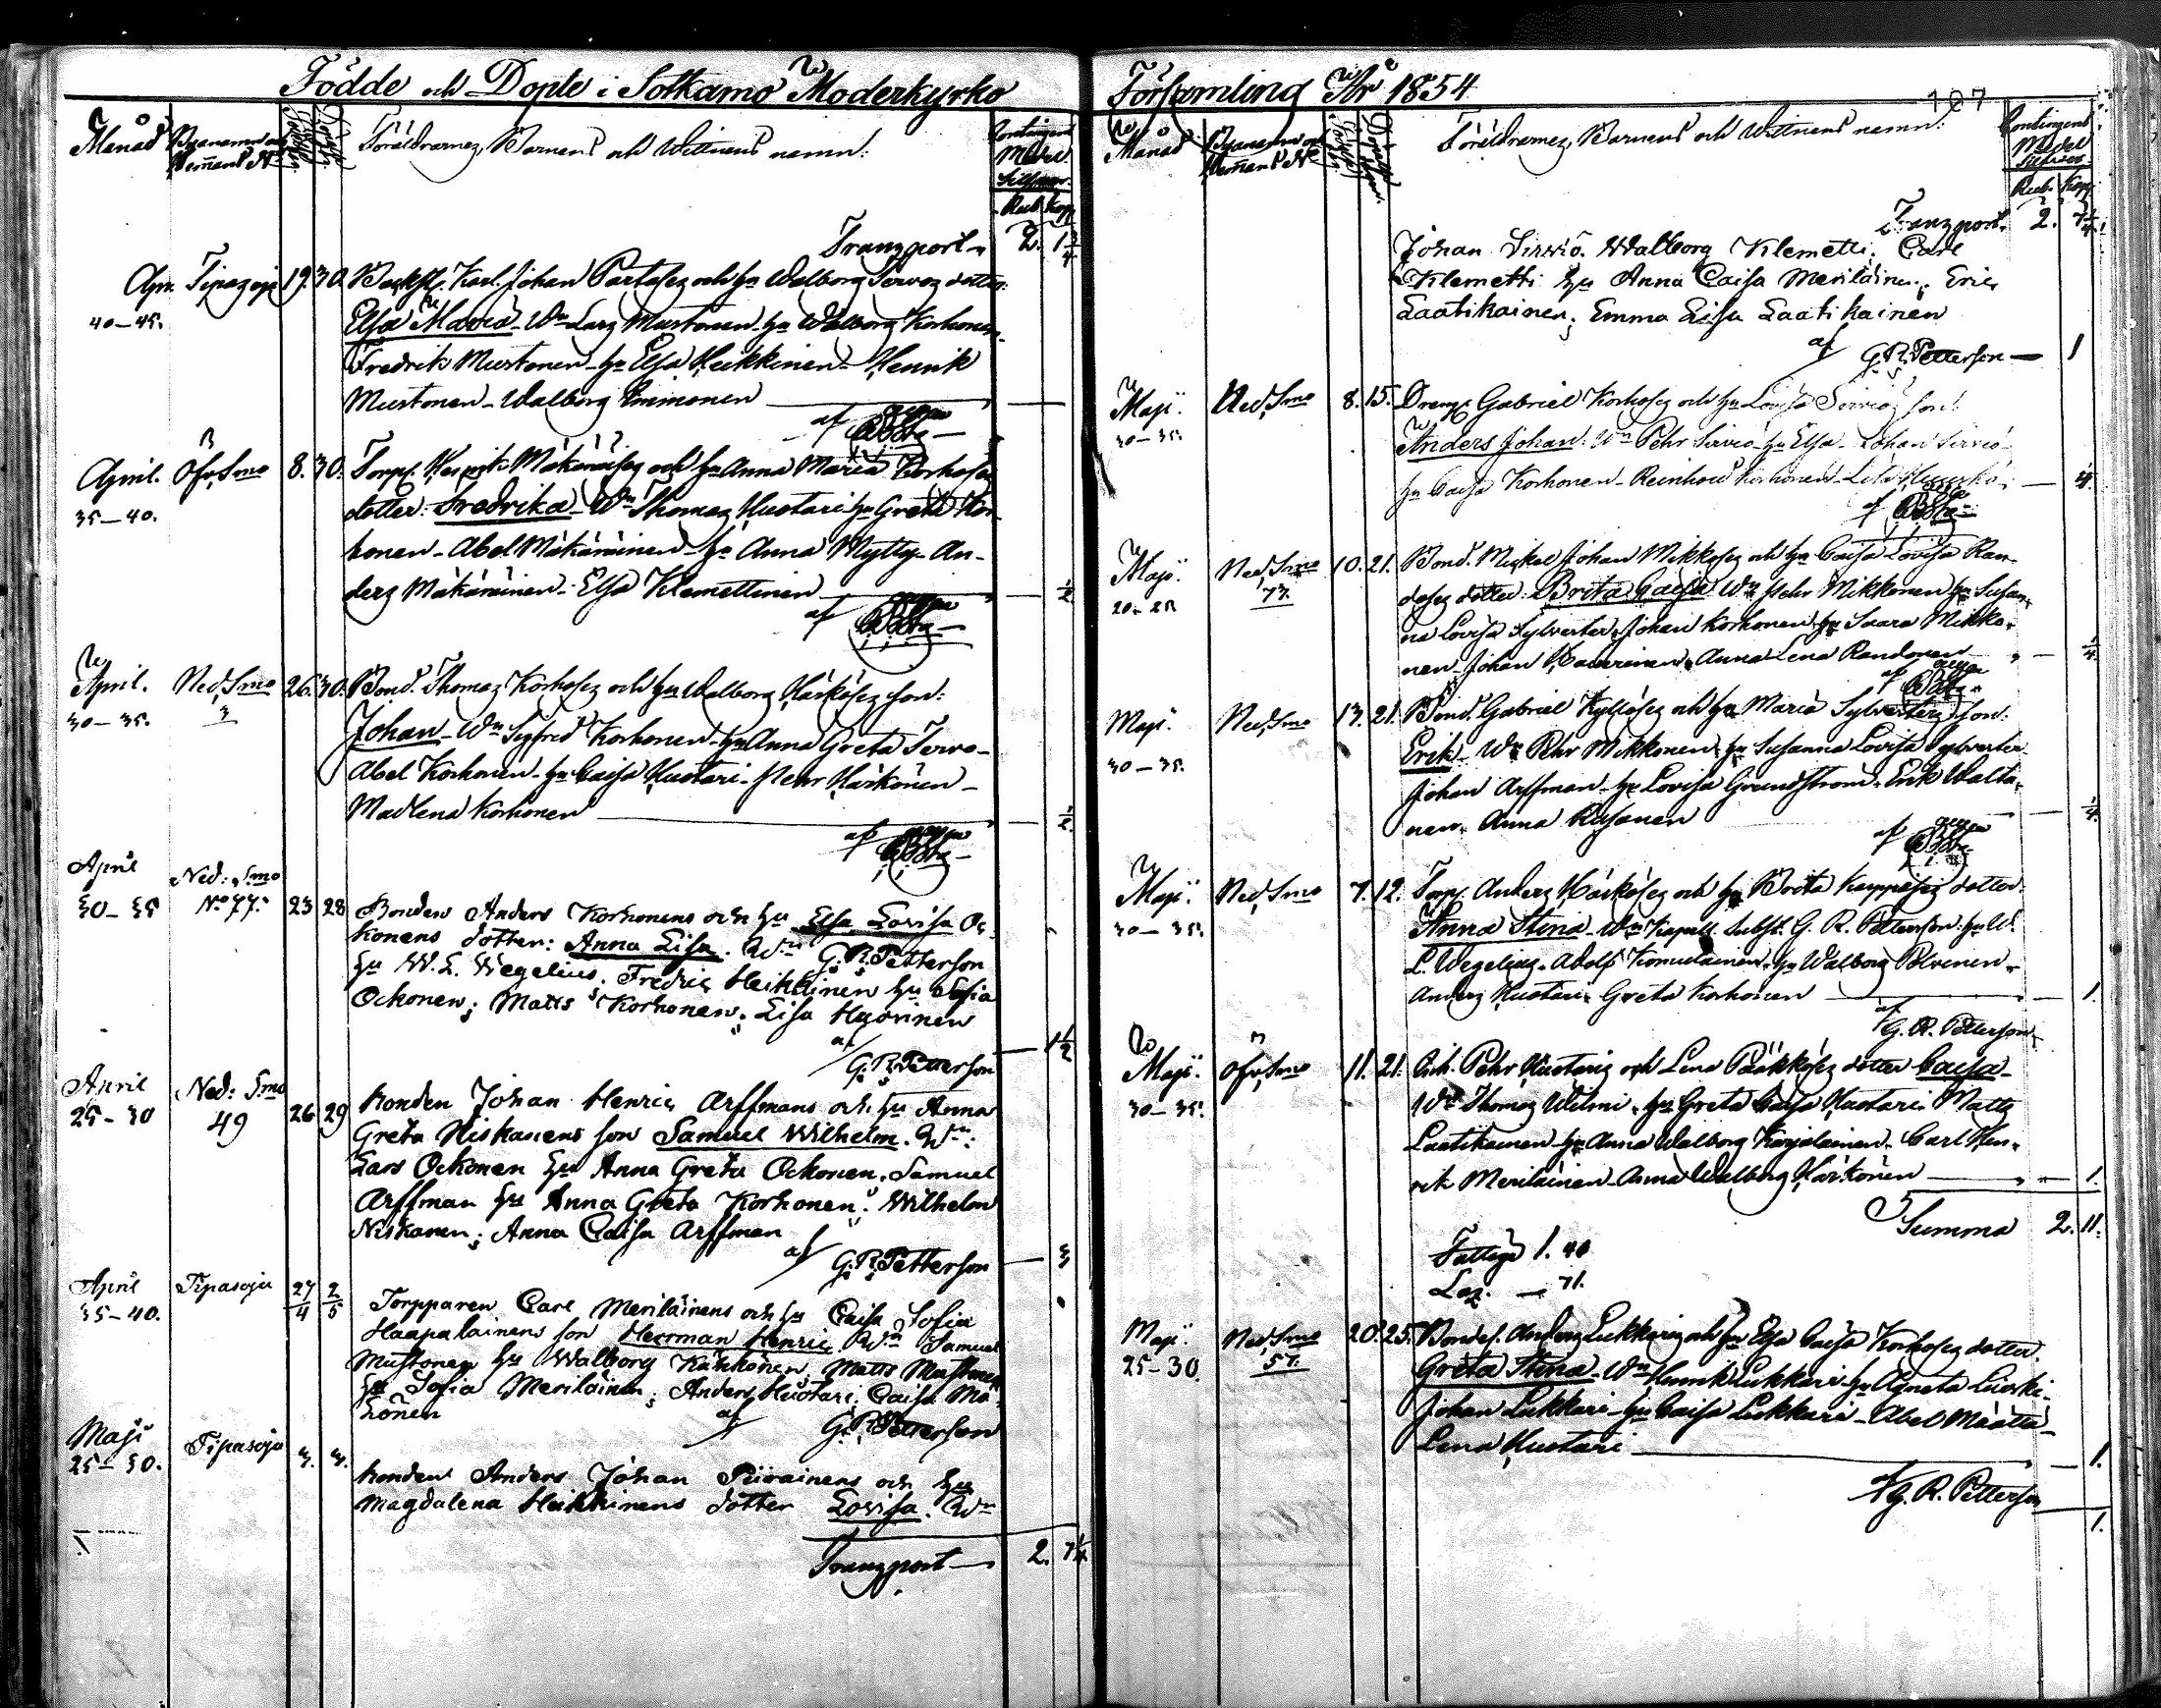 Födde och Döpte i Sotkamo Moderkyrko
Månad Byanamn och Hemans No Födde Döpte Föräldrarnes, Barnens och Wittnens namn: Contingent Medel Silfver
Rub. Kop.
Transport 2. 1 3/4
Apr. Tipasoja 19. 30. Karl Johan Partases och hu Walborg Tervos dotter:
40–45. Elsa Maria. Wn Lars Mustonen hu Walborg Korhonen
Fredrik Mustonen hu Elsa Heikkinen Henrik
Mustonen Walborg Imminonen
af
April. Ofv. Smo 8. 30. Torp. Henrik Mäkäräises och hu Anna Maria Korhoses
35–40. dotter: Fredrika. Wn Thomas Huotari hu Greta Kor-
honen. Abel Mäkäräinen hu Anna Mytty. An-
ders Mäkäräinen. Elsa Klemettinen 1/2
af
April. Ned. Smo 26. 30. Bond. Thomas Korhoses och hu Walborg Härköses son:
30–35. 3 Johan. Wn Sigfred Korhonen hu Anna Greta Tervo
Abel Korhonen hu Caisa Huotari. Pehr Härkönen
Madlena Korhonen 1/2
af
April Ned: Smo
30–35 No 77. 23 28 Bonden Anders Korhonens och hu Elsa Lovisa Oc-
konens dotter: Anna Lisa. Wn G. R. Petterson
hu W. L. Wegelius. Fredric Heikkinen hu Sofia
Ockonen; Matts Korhonen; Lisa Huovinen
af 1 1/2
G. R. Petterson
April Ned: Smo 26 29 Bonden Johan Henric Arffmans och hu Anna
25–30 49 Greta Niskanens son Samuel Wilhelm. Wn:
Lars Ockonen hu Anna Greta Ockonen. Samuel
Arffman hu Anna Greta Korhonen. Wilhelm
Niskanen; Anna Caisa Arffman
af G. R. Petterson 3
April Tipasoja 27/4 2/5 Torpparen Carl Meriläinens och hu Caisa Sofia
35–40. Haapalainens son Herrman Henric Wn Samuel
Mustonen hu Walborg Känkönen, Matts Mustonen
hu Sofia Meriläinen; Anders Huotari; Caisa Mo-
hönen af G. R. Petterson
Maji Tipasoja 3. 3. Bonden Anders Johan Piirainens och hu
25–30. Magdalena Heikkinens dotter Lovisa. Wn
Transport 2. 7 1/4
Församling År 1854
107
Månad Byanamn och Hemans No Föräldrarnes, Barnens och Wittnens namn: Contingent Medel Silfver
Rub. Kop.
Transport. 2. 7 1/4
Johan Sirviö. Walborg Klemetti. Carl
Klemetti hu Anna Caisa Meriläinen. Eric
Laatikainen; Emma Lisa Laatikainen
af G. R. Petterson 1
Maji. Ned. Smo 8. 15. Dreng. Gabriel Korhoses och hu Lovisa Sirviös son:
30–35. Anders Johan. Wn Pehr Sirviö hu Elsa. Johan Sirviö
hu Caisa Korhonen. Reinhold Korhonen 4.
af
Maji. Ned. Smo 10. 21. Bond. Mickel Johan Mikkoses och hu Caisa Lovisa Ran-
20–25 77. doses dotter: Brita Caisa Wn Pehr Mikkonen hu Susan-
na Lovisa Sylvester. Johan Korhonen hu Saara Mikko-
nen. Johan Anna Lena Randonen 1/4
af
Maji. Ned. Smo 13. 21. Bond. Gabriel Kyllöses och hu Maria Sylvesters son:
30–35. Erik. Wn Pehr Mikkonen hu Susanna Lovisa Sylvester
Johan Arffman hu Lovisa Grundström. Erik Walta-
nen. Anna Räsänen 1/4
af
Maji. Ned. Smo 7. 12. Torp. Anders Härköses och hu Brita Karppases dotter:
30–35. Anna Stina. Wn Kapell. Subst. G. R. Petterson hu W.
L. Wegelius. Adolf Komulainen hu Walborg Polvinen.
Anders Huotari. Greta Korhonen 1.
af G. R. Petterson
Maji. Ofv. Smo 11. 21. Inh. Pehr Huotaris och Lena Pääkköses dotter Caisa
30–35. Wn Thomas Wilmi hu Greta Caisa Huotari. Matts
Laatikainen hu Anna Walborg Karjalainen. Carl Hen-
rik Meriläinen. Anna Walborg Härkönen 1.
Summa 2. 11.
Fattige 1. 40
Laz. — 71.
Maji. Ned. Smo 20. 25. Bondes. Anders Lukkaris och hu Elsa Caisa Korhoses dotter
25–30. 57. Greta Stina. Wn Henrik Lukkari hu Agneta
Johan Lukkari hu Caisa Lukkari. Abel Määttä
Lena Huotari 1.
af G. R. Petterson
1.